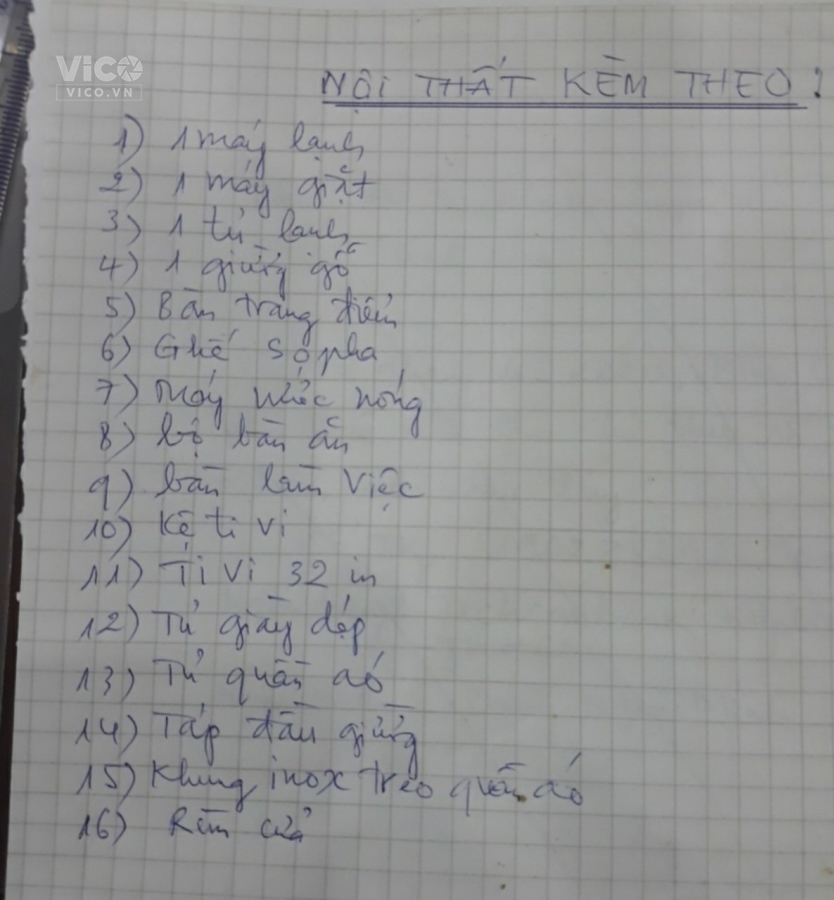 VICO
VICO.VN
NỘI THẤT KÈM THEO:
1) 1 máy lạnh
2) 1 máy giặt
3) 1 tủ lạnh
4) 1 giường gỗ
5) Bàn trang điểm
6) Ghế sopha
7) Máy nước nóng
8) bộ bàn ăn
9) bàn làm việc
10) Kệ ti vi
11) Ti vi 32 in
12) Tủ giày dép
13) Tủ quần áo
14) Táp đầu giường
15) Khung inox treo quần áo
16) Rèm cửa